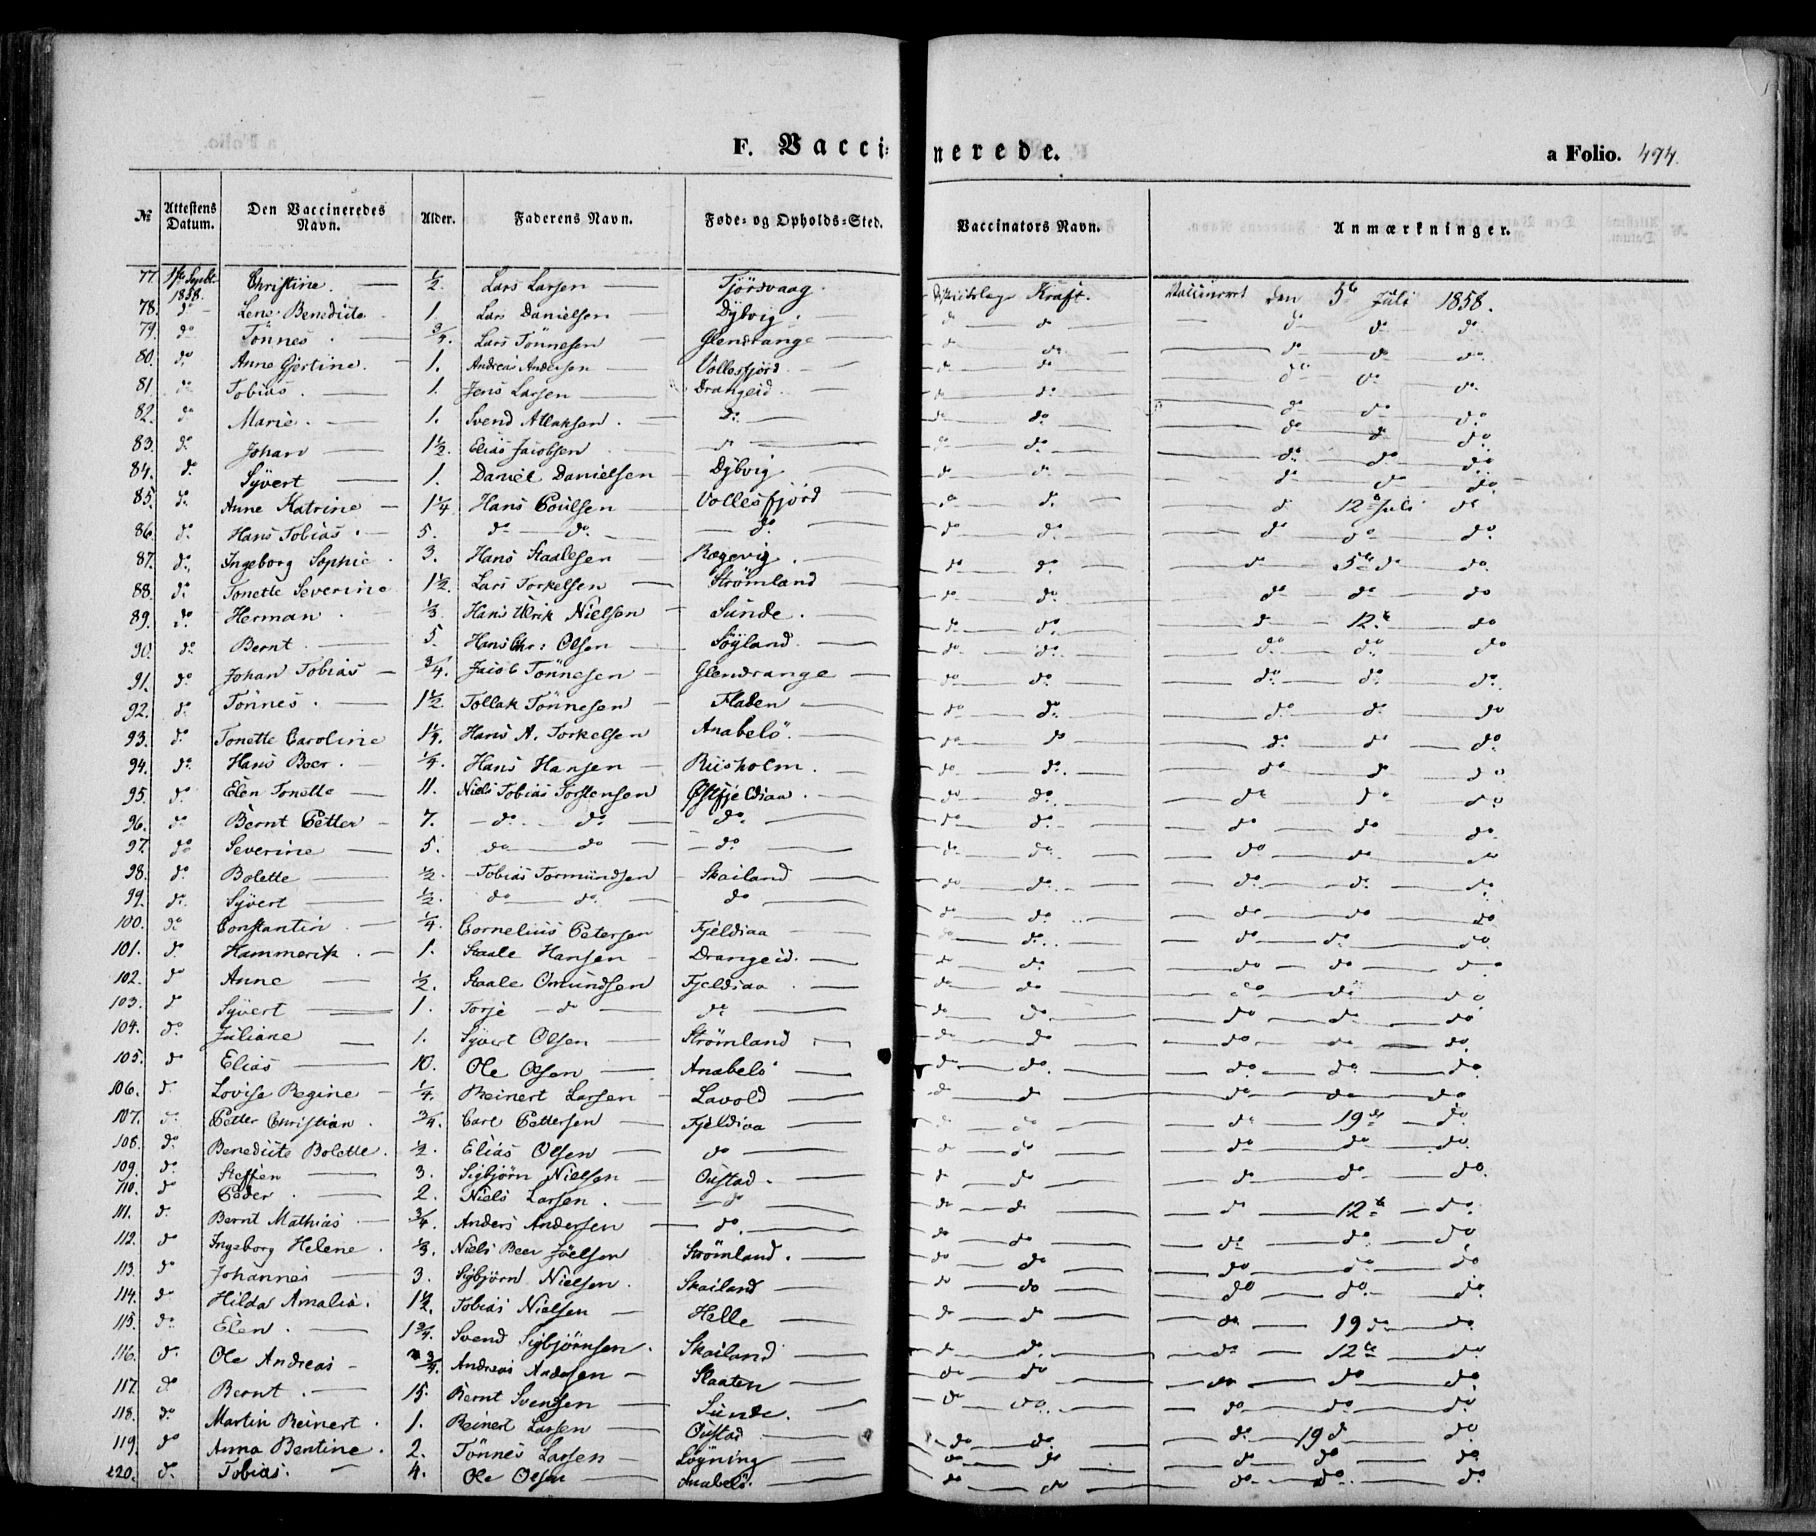 F. Vaccinerede. a Folio. 474.
№ Attestens Datum. Den Vaccineredes Navn. Alder. Faderens Navn. Føde- og Opholds-Sted. Vaccinators Navn. Anmærkninger.
77. 1ste Septbr 1858. Christine. ½ Lars Larsen Fjörsvaag. Kraft. Vaccineret den 5te Juli 1858.
78. do Lene Benedicte 1. Lars Danielsen Dÿbvig. do do do do do
79. do Tönnes. ¾. Lars Tönnesen Glendrange do do do do do
80. do Anne Gjertine. 1. Andreas Andersen Vollesfjörd do do do do do
81. do Tobias. 1. Jens Larsen Drangeid. do do do do do
82. do Marie. 1. Svend Atlaksen. do do do do do do
83. do Johan 1½. Elias Jacobsen do do do do do do
84. do Sÿvert 1. Daniel Danielsen Dÿbvig do do do do do
85. do Anne Katrine 1¼ Hans Poulsen Vollesfjörd do do do 12te Juli do
86. do Hans Tobias. 5. do do do do do do do do
87. do Ingeborg Sophie. 3. Hans Staalesen Rægevig. do do do 5te do do
88. do Tonette Severine 1½. Lars Torkelsen Strømland do do do do do
89. do Herman ⅓. Hans Ulrik Nielsen Sunde. do do do 12te do
90. do Bernt. 5. Hans Chr: Olsen Söyland. do do do do do
91. do Johan Tobias ¾. Jacob Tönnesen Glendrange do do do do do
92. do Tönnes. 1½. Tollak Tönnesen Fladen do do do do do
93. do Tonette Caroline 1¼. Hans A. Torkelsen Anabelö. do do do do do
94. do Hans Beer. ¼. Hans Hansen Riisholm. do do do do do
95. do Elen Tonette 11. Niels Tobias Torstensen Østfjeldiaa. do do do do do
96. do Bernt Petter 7. do do do do do do do do
97. do Severine 5. do do do do do do do do
98. do Bolette ½. Tobias Tormundsen Skailand do do do do do
99. do Sÿvert ½. do do do do do do do do
100. do Constantin ¼. Cornelius Petersen Fjeldiaa do do do do do
101. do Hammerik. 1. Staale Hansen Drangeid. do do do do do
102. do Anne ½. Staale Omundsen Fjeldiaa. do do do do do
103. do Sÿvert 1. Torje do do do do do do do
104. do Juliane 1. Sÿvert Olsen Strømland do do do do do
105. do Elias 10. Ole Olsen Anabelö do do do do do
106. do Lovise Regine ¼. Reinert Larsen Lavold do do do do do
107. do Petter Christian. ¾. Carl Pettersen Fjeldiaa do do do 19de do
108. do Benedicte Bolette. ½. Elias Olsen do do do do do do
109. do Steffen 3. Sigbjörn Nielsen Oustad. do do do do do
110. do Peder. 2. Niels Larsen. do do do do 12te do
111. do Bernt Mathias ¾. Anders Andersen do. do do do do do
112. do Ingeborg Helene. ⅓. Niels Beer Joelsen Strømland. do do do do do
113. do Johannes 3. Sigbjörn Nielsen. Skailand do do do do do
114. do Hilda Amalia. 1½. Tobias Nielsen Helle do do do 19de do
115. do Elen. 1¾. Svend Sigbjörnsen. Skailand do do do 12te do
116. do Ole Andreas ¾. Andreas Andersen Staaten do do do do do
117. do Bernt. 15. Bernt Svensen Sunde. do do do do do
118. do Martin Reinert. 1. Reinert Larsen Oustad do do do 19d do
119. do Anna Bentine. 2. Tönnes Larsen Löyning do do do do do
120. do Tobias. 4. Ole Olsen Anabelö. do do do do do